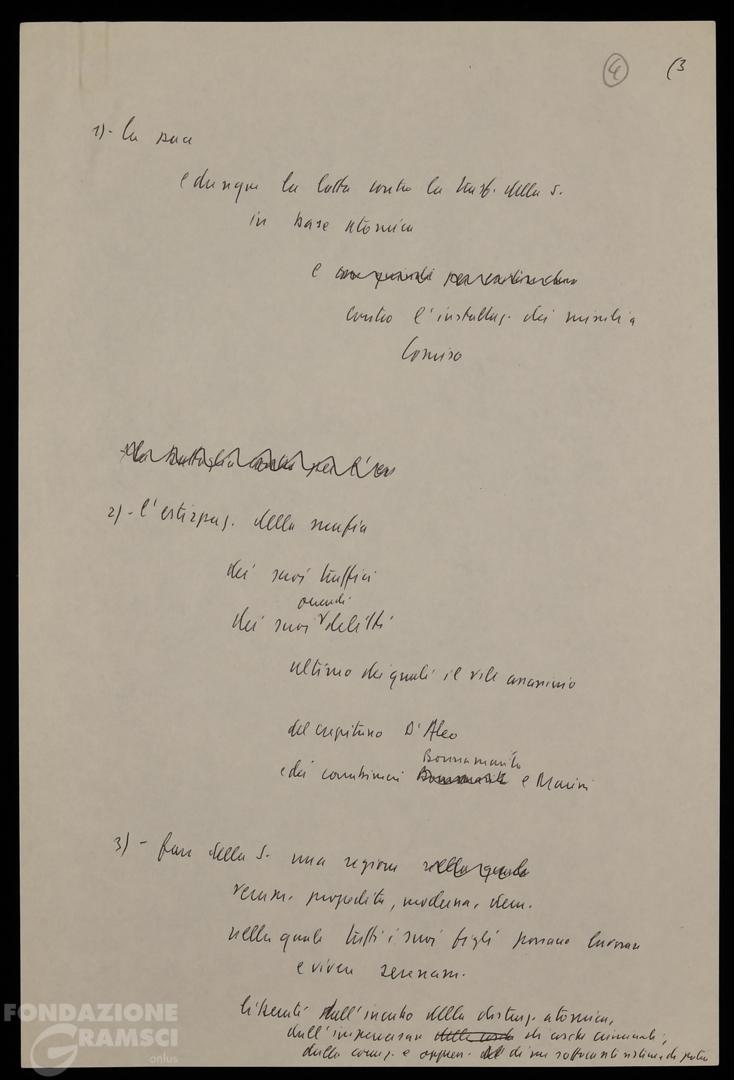 4 (3
1)- la pace
e dunque la lotta contro la trasf. della S.
in base atomica
e
contro l'installaz. dei missili a
Comiso
2)- l'estirpaz. della mafia
dei suoi traffici
orrendi
dei suoi delitti
ultimo dei quali il vile assassinio
del capitano D'Aleo
Bonmarito
e dei carabinieri e Marini
3)- fare della S. una regione nella quale
veram. progredita, moderna, dem.
nella quale tutti i suoi figli possano lavorare
e vivere serenam.
liberati dall'incubo della distruz. atomica,
dall'imperversare di cosche criminali,
dalla corruz. e oppress. di un soffocante sistema di potere
FONDAZIONE
GRAMSCI
onlus